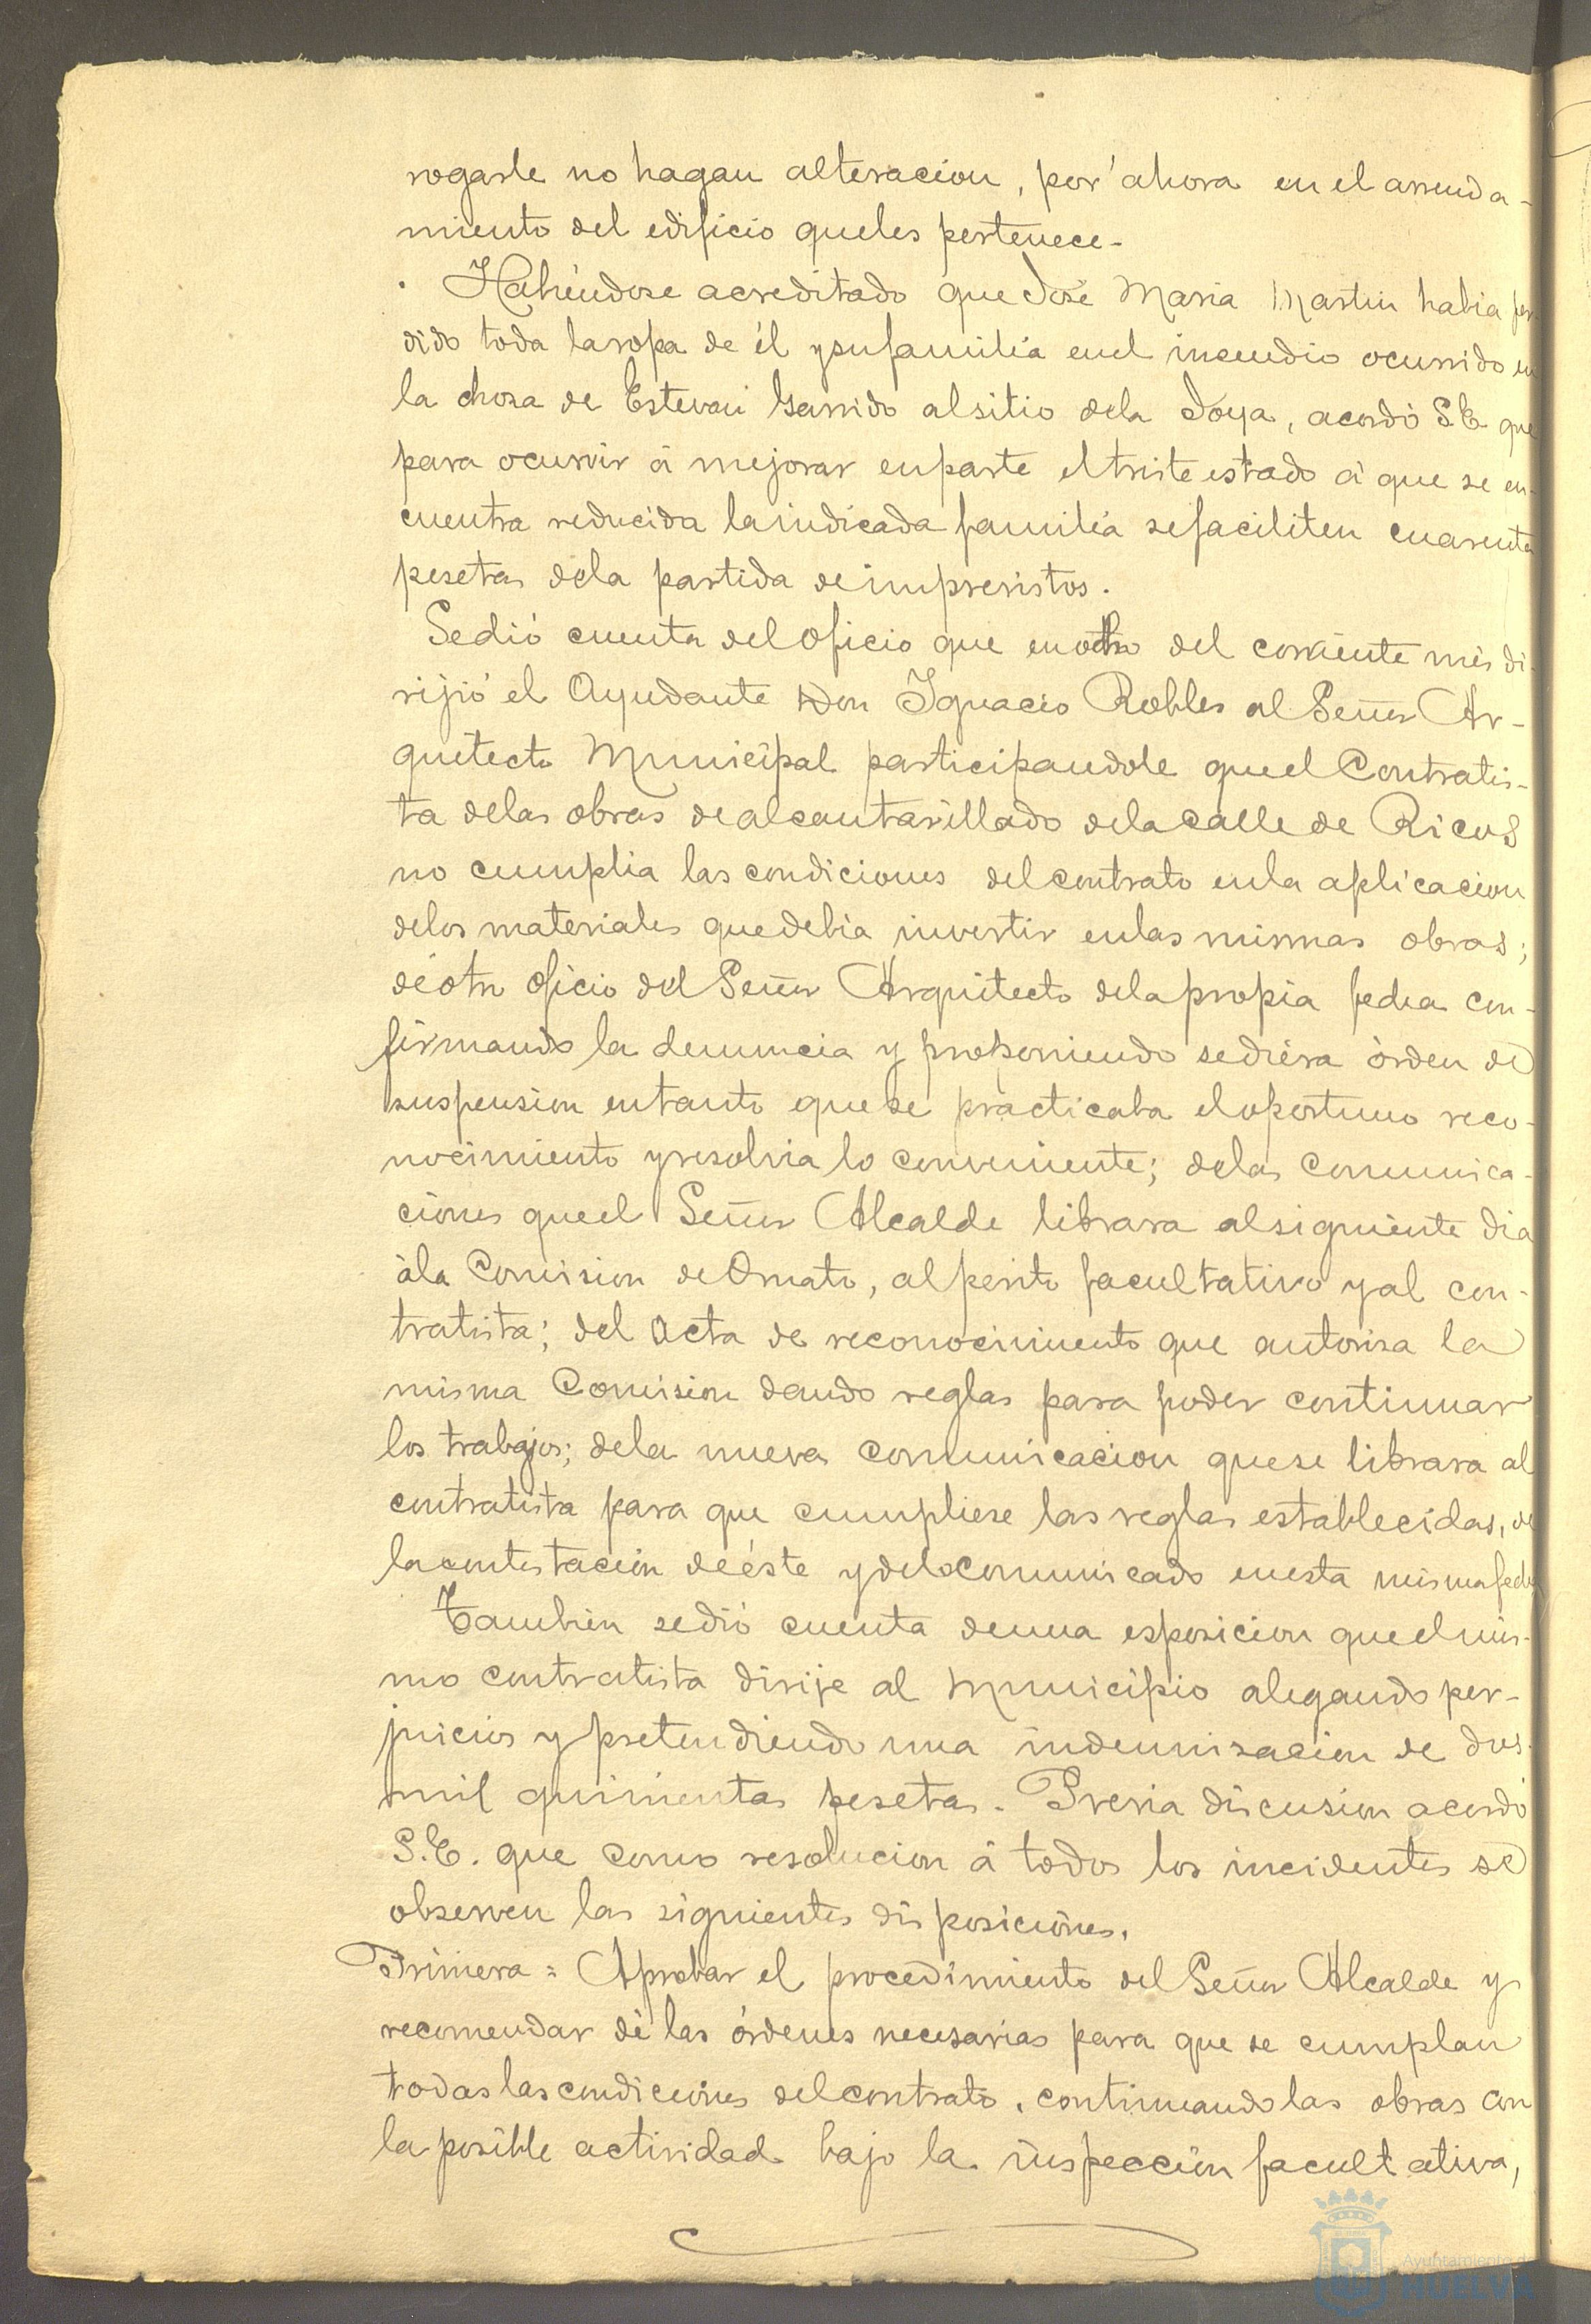 rogarle no hagan alteracion, por ahora en el arrenda-
miento del edificio que les pertenece-
Habiéndose acreditado que José Maria Martin habia per
dido toda la ropa de él y su familia en el incendio ocurrido en
la choza de Estevan Garrido al sitio de la Joya, acordó S.E. que
para ocurrir á mejorar en parte el triste estado á que se en-
cuentra reducida la indicada familia se faciliten cuarenta
pesetas de la partida de imprevistos.
Se dió cuenta del oficio que en ocho del corriente mes di-
rijió el Ayudante Don Ignacio Robles al Señor Ar-
quitecto Municipal participandole que el Contratis-
ta de las obras de alcantarillado de la calle de Ricos
no cumplia las condiciones del contrato en la aplicacion
de los materiales que debia invertir en las mismas obras;
de otro oficio del Señor Arquitecto de la propia fecha con-
firmando la denuncia y proponiendo se diera órden de
suspension en tanto que se practicaba el oportuno reco-
nocimiento y resolvia lo conveniente; de las comunica-
ciones que el Señor Alcalde librara al siguiente dia
á la Comision de Ornato, al perito facultativo y al con-
tratista; del acta de reconocimiento que autoriza la
misma Comision dando reglas para poder continuar
los trabajos; de la nueva comunicacion que se librara al
contratista para que cumpliese las reglas establecidas, de
la contestacion de éste y de lo comunicado en esta misma fecha
Tambien se dió cuenta de una esposicion que el mis-
mo contratista dirije al Municipio alegando per-
juicios y pretendiendo una indemnizacion de dos
mil quinientas pesetas. Previa discusion acordó
S.E. que como resolucion á todos los incidentes se
observen las siguientes disposiciones.
Primera = Aprobar el procedimiento del Señor Alcalde y
recomendar dé las órdenes necesarias para que se cumplan
todas las condiciones del contrato, continuando las obras con
la posible actividad bajo la inspeccion facultativa,
Ayuntamiento de
HUELVA